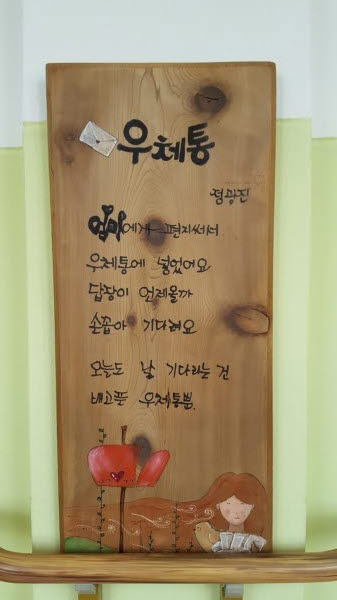 우체통
정광진
엄마에게 편지써서
우체통에 넣었어요
답장이 언제올까
손꼽아 기다려요
오늘도 날 기다리는 건
배고픈 우체통뿐.